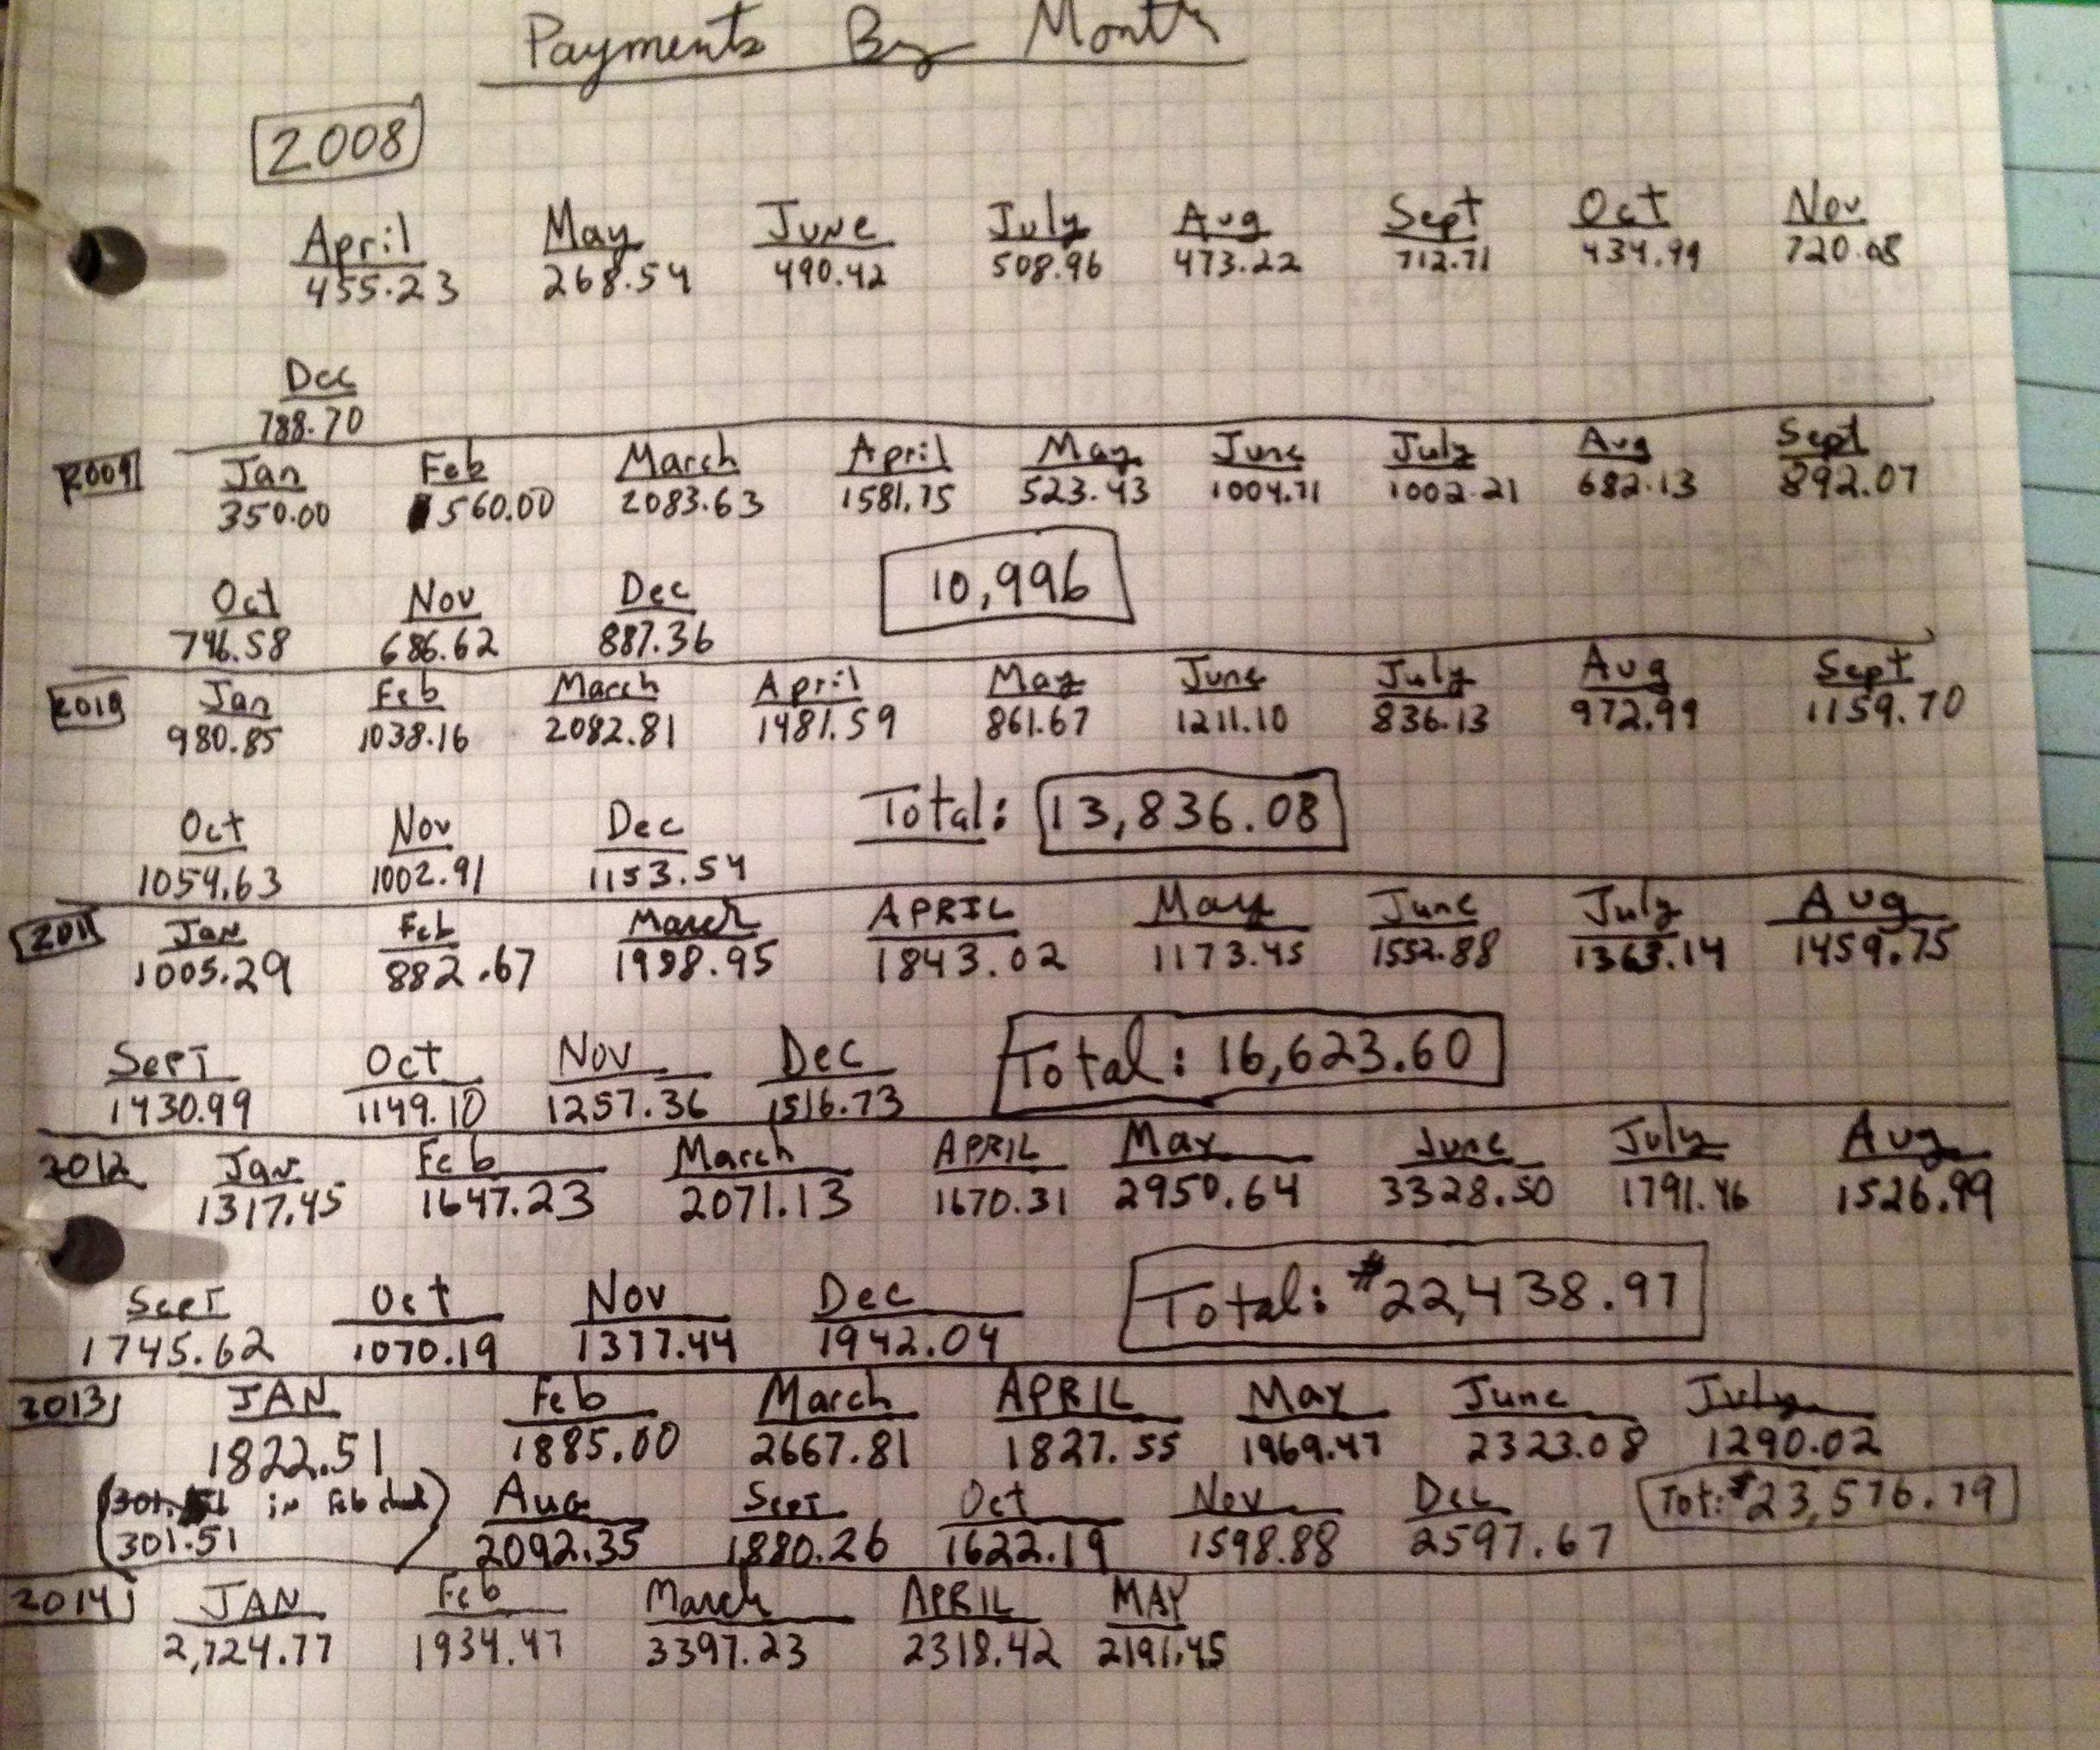 Payments By Month
2008
April May June July Aug Sept Oct Nov
455.23 268.54 490.42 508.96 473.22 712.71 434.99 720.08
Dec
788.70
2009 Jan Feb March April May June July Aug Sept
350.00 560.00 2083.63 1581.75 523.43 1004.71 1002.21 682.13 892.07
10,996
Oct Nov Dec
746.58 686.62 887.36
2010 Jan Feb March April May June July Aug Sept
980.85 1038.16 2082.81 1481.59 861.67 1211.10 836.13 972.99 1159.70
Total: 13,836.08
Oct Nov Dec
1054.63 1002.91 1153.54
2011 Jan Feb March APRIL May June July Aug
1005.29 882.67 1988.95 1843.02 1173.45 1552.88 1363.14 1459.75
Sept Oct Nov Dec Total: 16,623.60
1430.99 1149.10 1257.36 1516.73
2012 Jan Feb March APRIL May June July Aug
1317.45 1647.23 2071.13 1670.31 2950.64 3328.50 1791.46 1526.99
Sept Oct Nov Dec Total: $22,438.97
1745.62 1070.19 1377.44 1942.04
2013 JAN Feb March APRIL May June July
1822.51 1885.00 2667.81 1827.55 1969.47 2323.08 1290.02
(301.51 in Feb check) Aug Sept Oct Nov Dec Tot: $23,576.79
301.51 2092.35 1880.26 1622.19 1598.88 2597.67
2014 JAN Feb March APRIL MAY
2,724.77 1934.47 3397.23 2318.42 2191.45